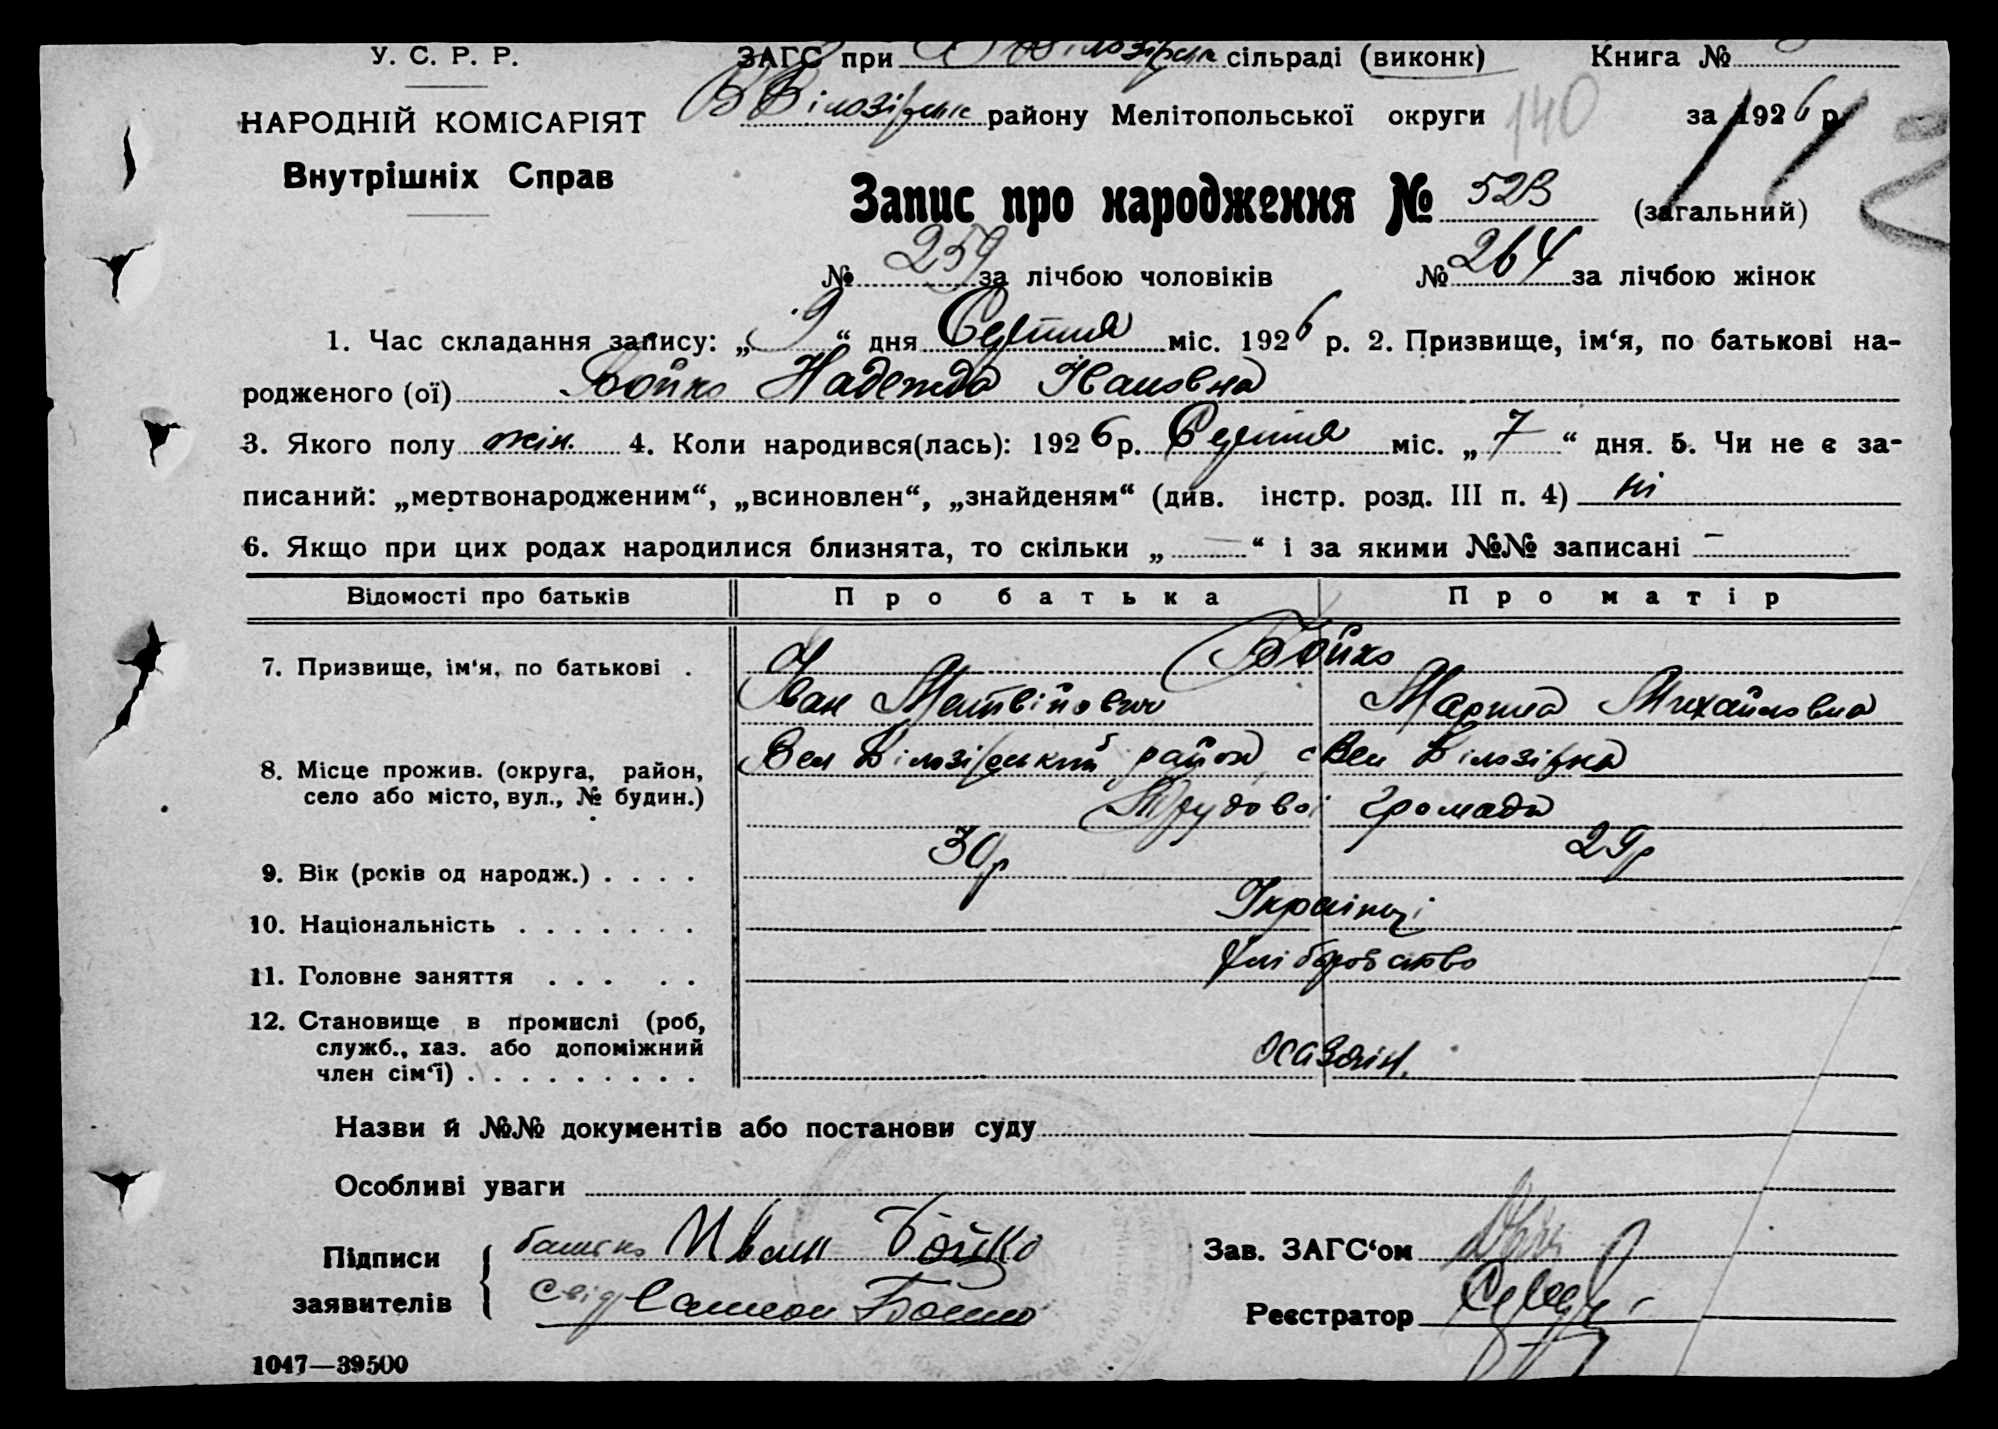 У. С. Р. Р. ЗАГС при В Білозірск сільраді (виконк) Книга №
НАРОДНІЙ КОМІСАРІЯТ В Білозірск району Мелітопольської округи 140 за 1926 р.
Внутрішніх Справ
Запис про народження № 523 (загальний)
№ 259 за лічбою чоловіків № 264 за лічбою жінок
1. Час складання запису: „ 9 “ дня Серпня міс. 1926 р. 2. Призвище, ім‘я, по батькові на-
родженого (ої) Бойко Надежда Івановна
3. Якого полу жін. 4. Коли народився(лась): 1926 р. Серпня міс. „ 7 “ дня. 5. Чи не є за-
писаний: „мертвонародженим“, „всиновлен“, „знайденям“ (див. інстр. розд. III п. 4) ні
6. Якщо при цих родах народилися близнята, то скільки „ — “ і за якими №№ записані —
Відомості про батьків Про батька Про матір
7. Призвище, ім‘я, по батькові . Бойко
Іван Матвійович Марина Михайловна
8. Місце прожив. (округа, район, Вел Білозірський район, с Вел Білозірка
село або місто, вул., № будин.) Трудової громади
9. Вік (років од народж.) . . . . 30р 29р
10. Національність . . . . . . . Українці
11. Головне заняття . . . . . Хліборобство
12. Становище в промислі (роб,
служб., хаз. або допоміжний хазяін.
член сім‘ї) . . . . . . . . .
Назви й №№ документів або постанови суду
Особливі уваги
Підписи батько Иван Бойко Зав. ЗАГС‘ом
заявителів свід Бойко Реєстратор
1047—39500